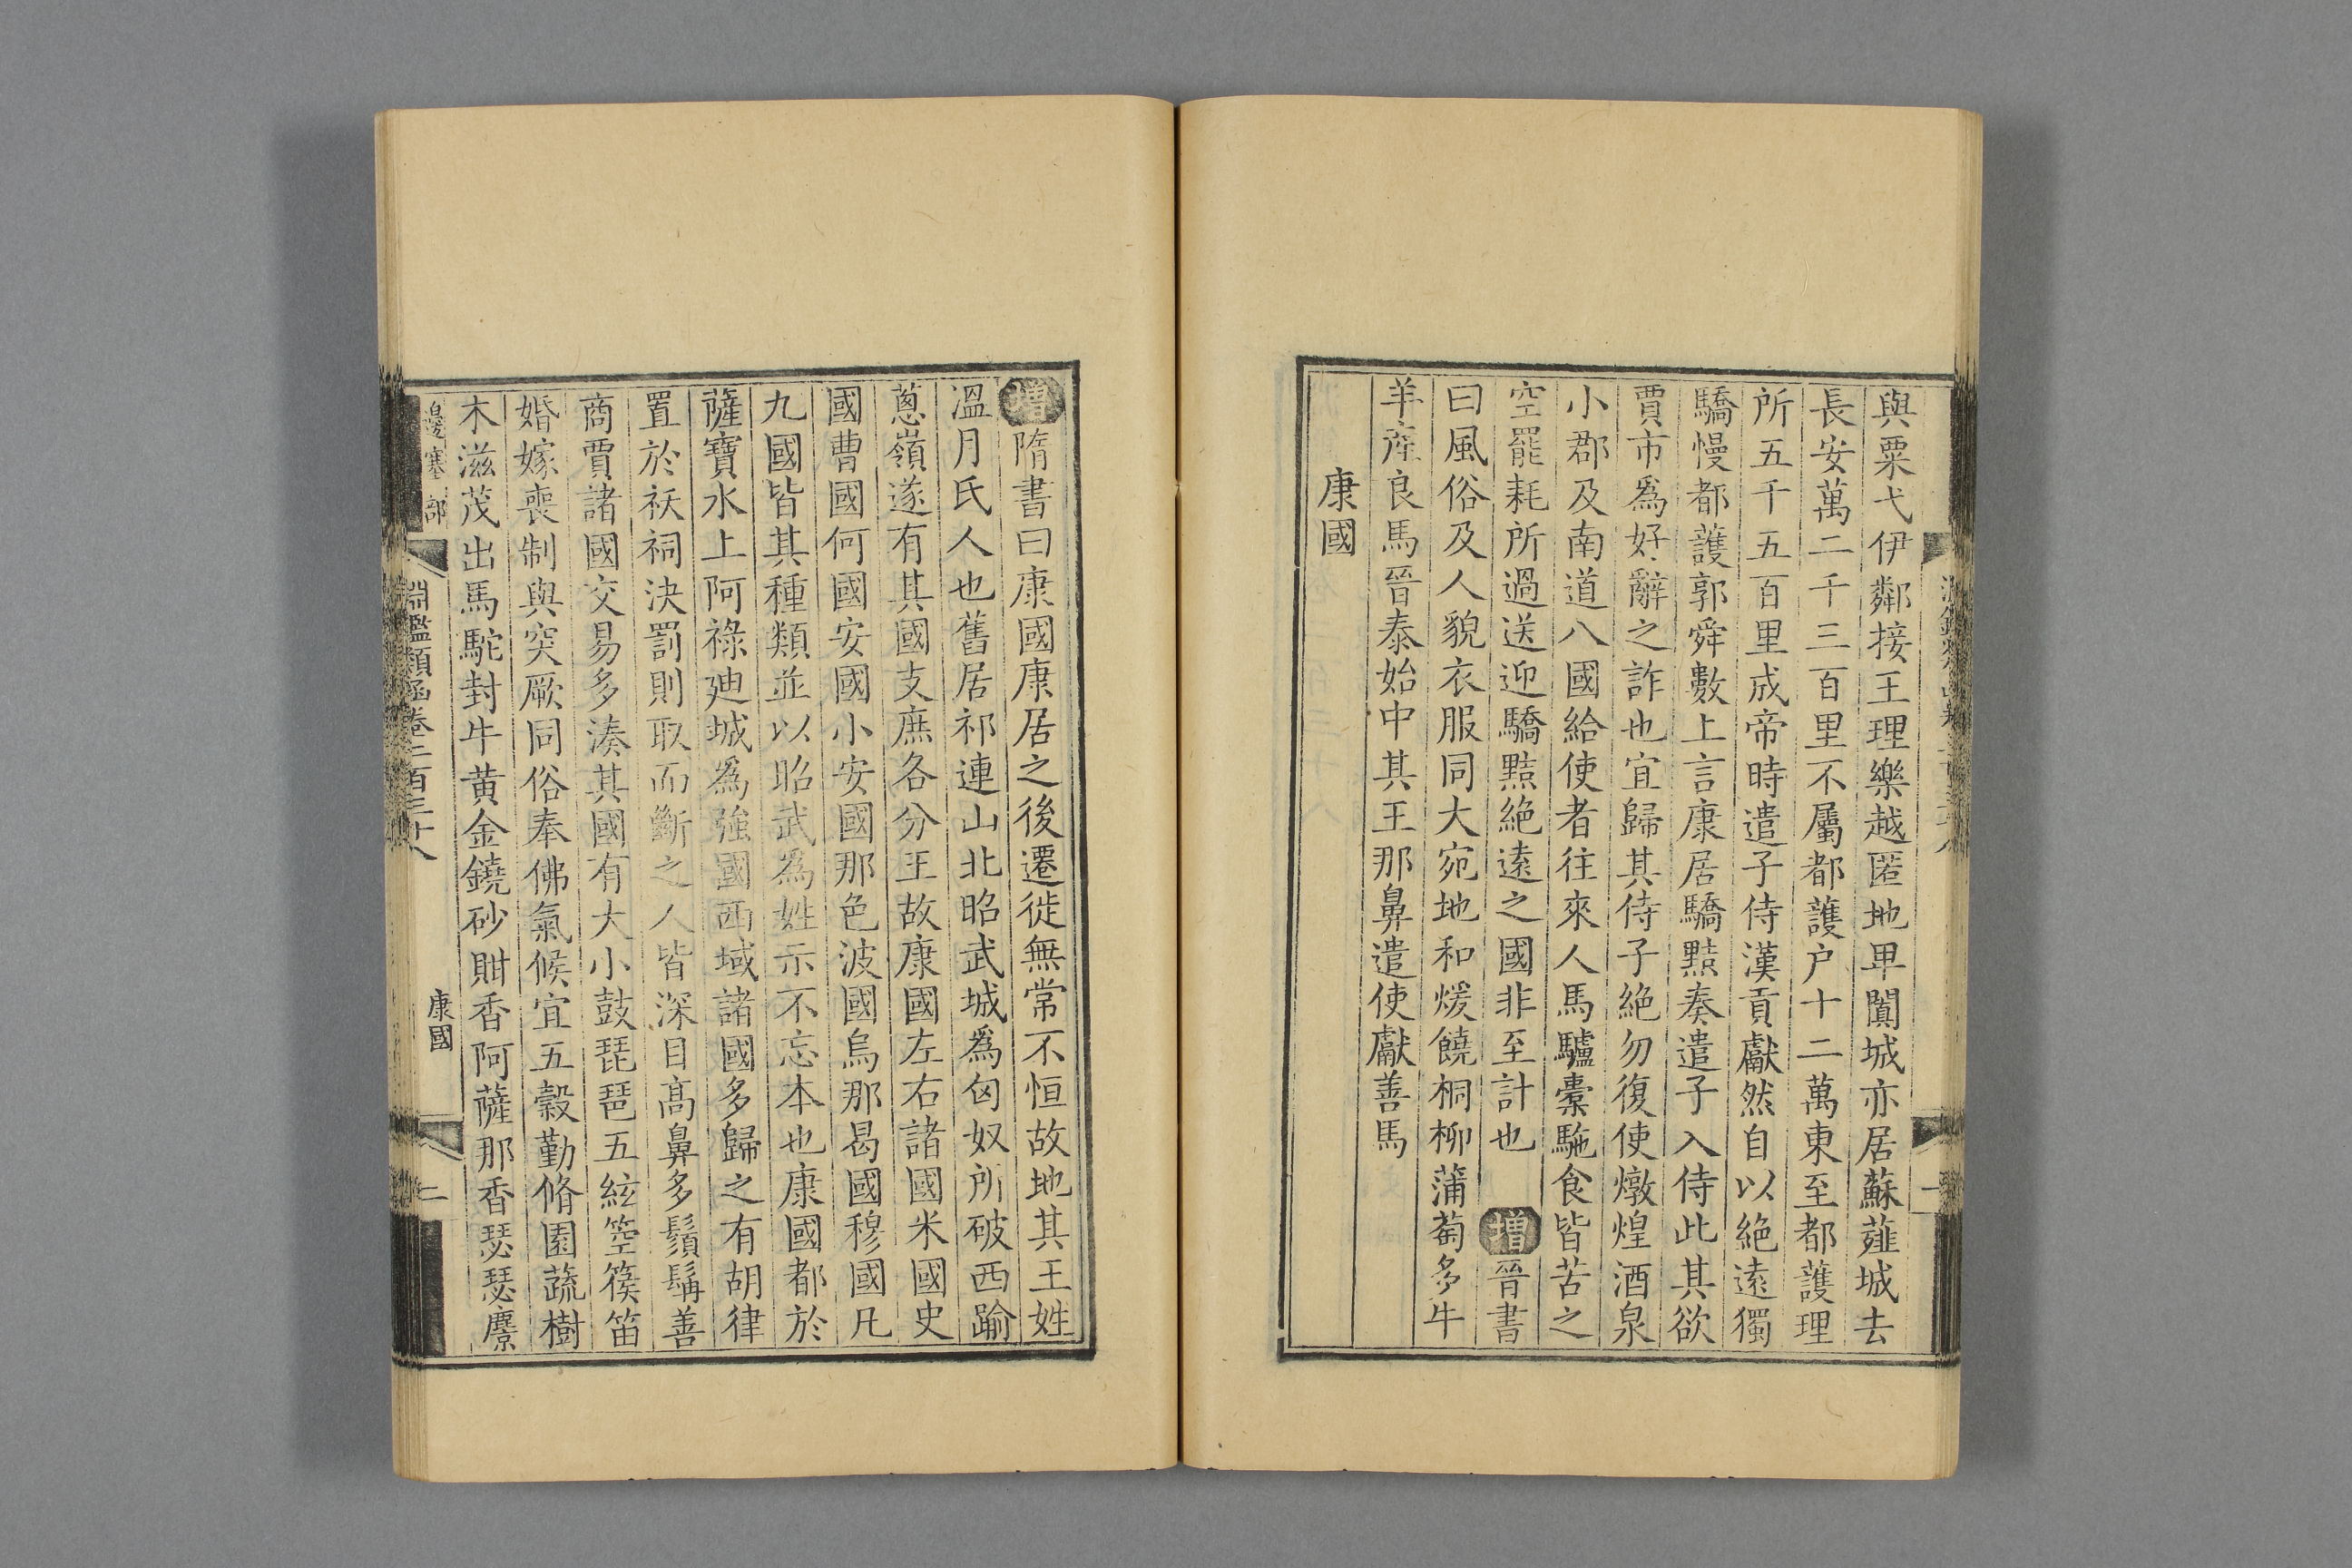 與粟弋伊鄰接王理樂越匿地卑闐城亦居蘇薤城去
長安萬二千三百里不屬都護户十二萬東至都護理
所五千五百里成帝時遣子侍漢貢獻然自以絶遠獨
驕慢都護郭舜數上言康居驕黠奏遣子入侍此其欲
賈市爲好辭之詐也宜歸其侍子絶勿復使燉煌酒泉
小郡及南道八國給使者往來人馬驢橐駞食皆苦之
空罷耗所過送迎驕黠絶遠之國非至計也 增晉書
曰風俗及人貌衣服同大宛地和煖饒桐柳蒲萄多牛
羊產良馬晉泰始中其王那鼻遣使獻善馬
康國
增隋書曰康國康居之後遷徙無常不恒故地其王姓
溫月氏人也舊居祁連山北昭武城爲匈奴所破西踰
蔥嶺遂有其國支庶各分王故康國左右諸國米國史
國曹國何國安國小安國那色波國烏那曷國穆國凡
九國皆其種類並以昭武爲姓示不忘本也康國都於
薩寶水上阿祿廸城爲強國西域諸國多歸之有胡律
置於祅祠決罰則取而斷之人皆深目高鼻多鬚髯善
商賈諸國交易多湊其國有大小鼓琵琶五絃箜篌笛
婚嫁喪制與突厥同俗奉佛氣候宜五穀勤脩園蔬樹
木滋茂出馬駝封牛黃金鐃砂𧵊香阿薩那香瑟瑟麖
邊塞部
淵鑑類函卷二百三十八
康國
二